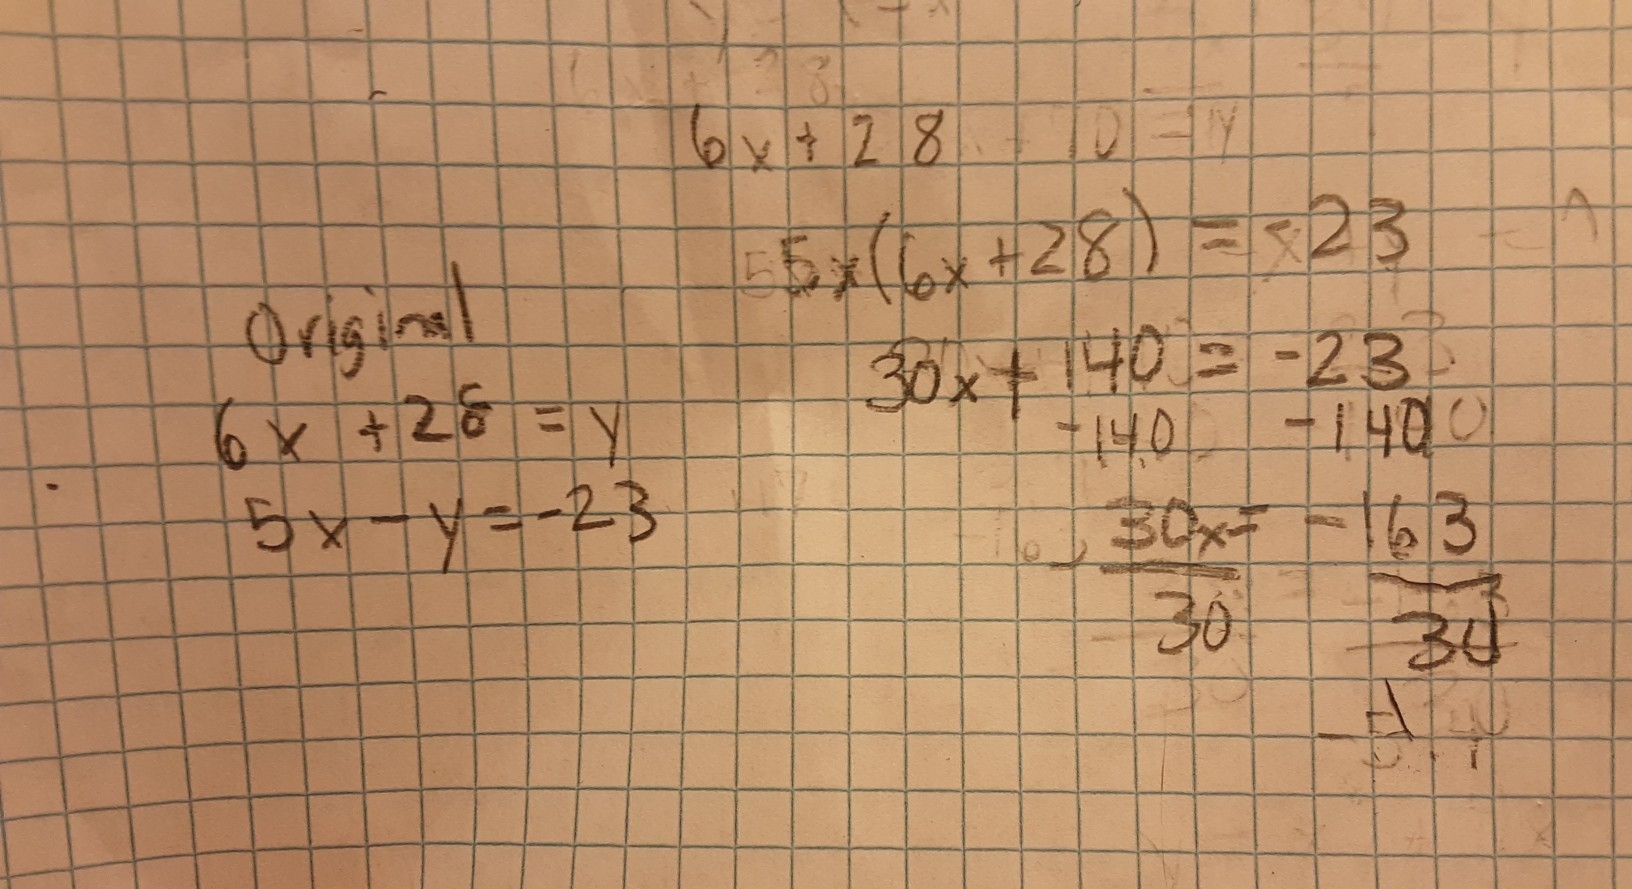 6x + 28
5x(6x + 28) = -23
30x + 140 = -23
-140 -140
30x = -163
30 30
Original
6x + 28 = y
5x - y = -23